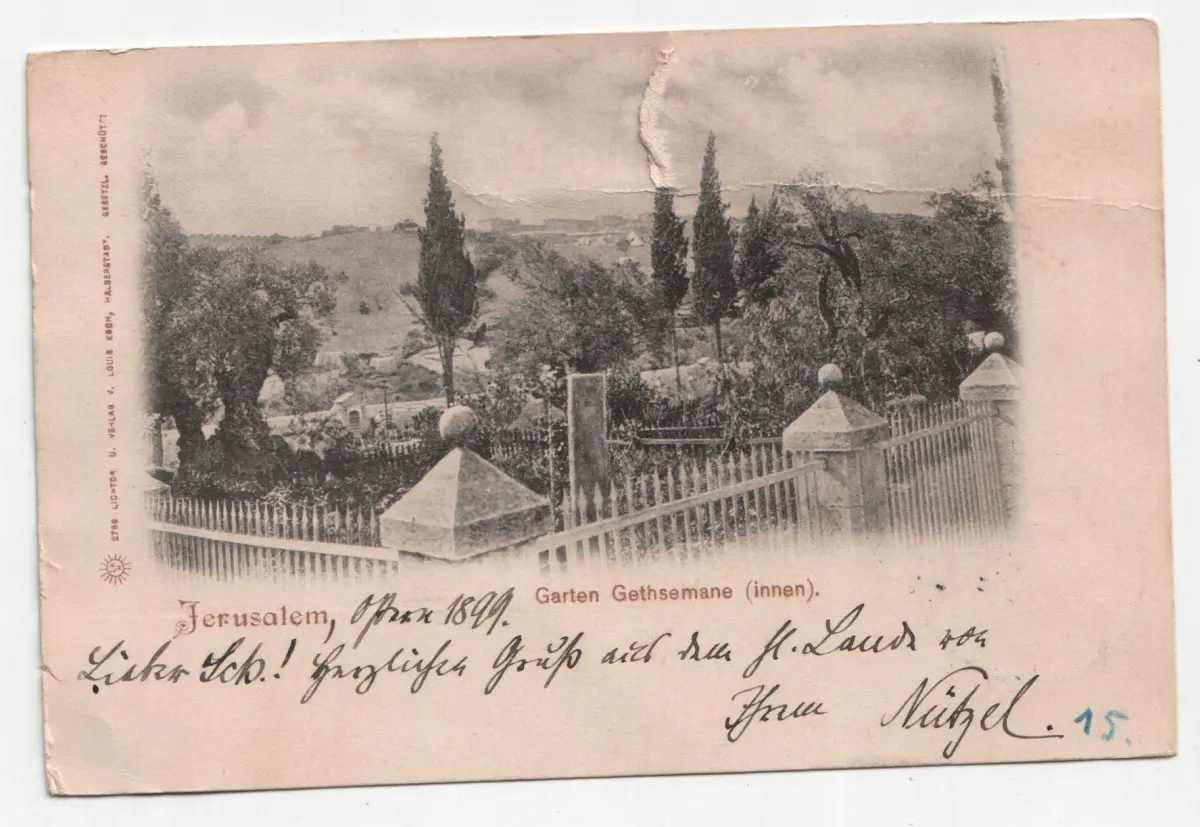 2766 LICHTDR. U. VERLAG V. LOUIS KROH, HALBERSTADT. GESETZL. GESCHÜTZT.
Garten Gethsemane (innen).
Jerusalem, Ostern 1899.
Lieber Sch.! Herzlichen Gruß aus dem hl. Lande von
Ihrem Nützel. 15.